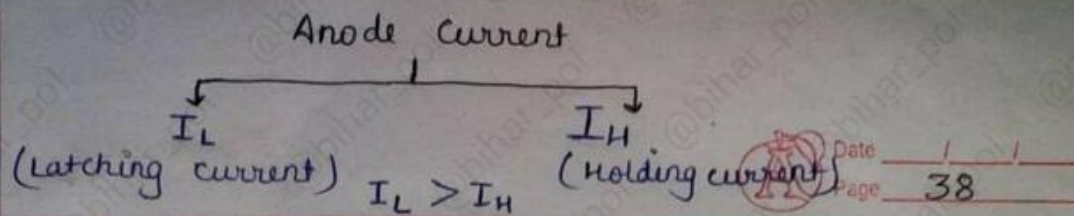 Anode Current
I_L I_H
(Latching current) (Holding current)
I_L > I_H
Date / /
Page 38
@bihar_pol